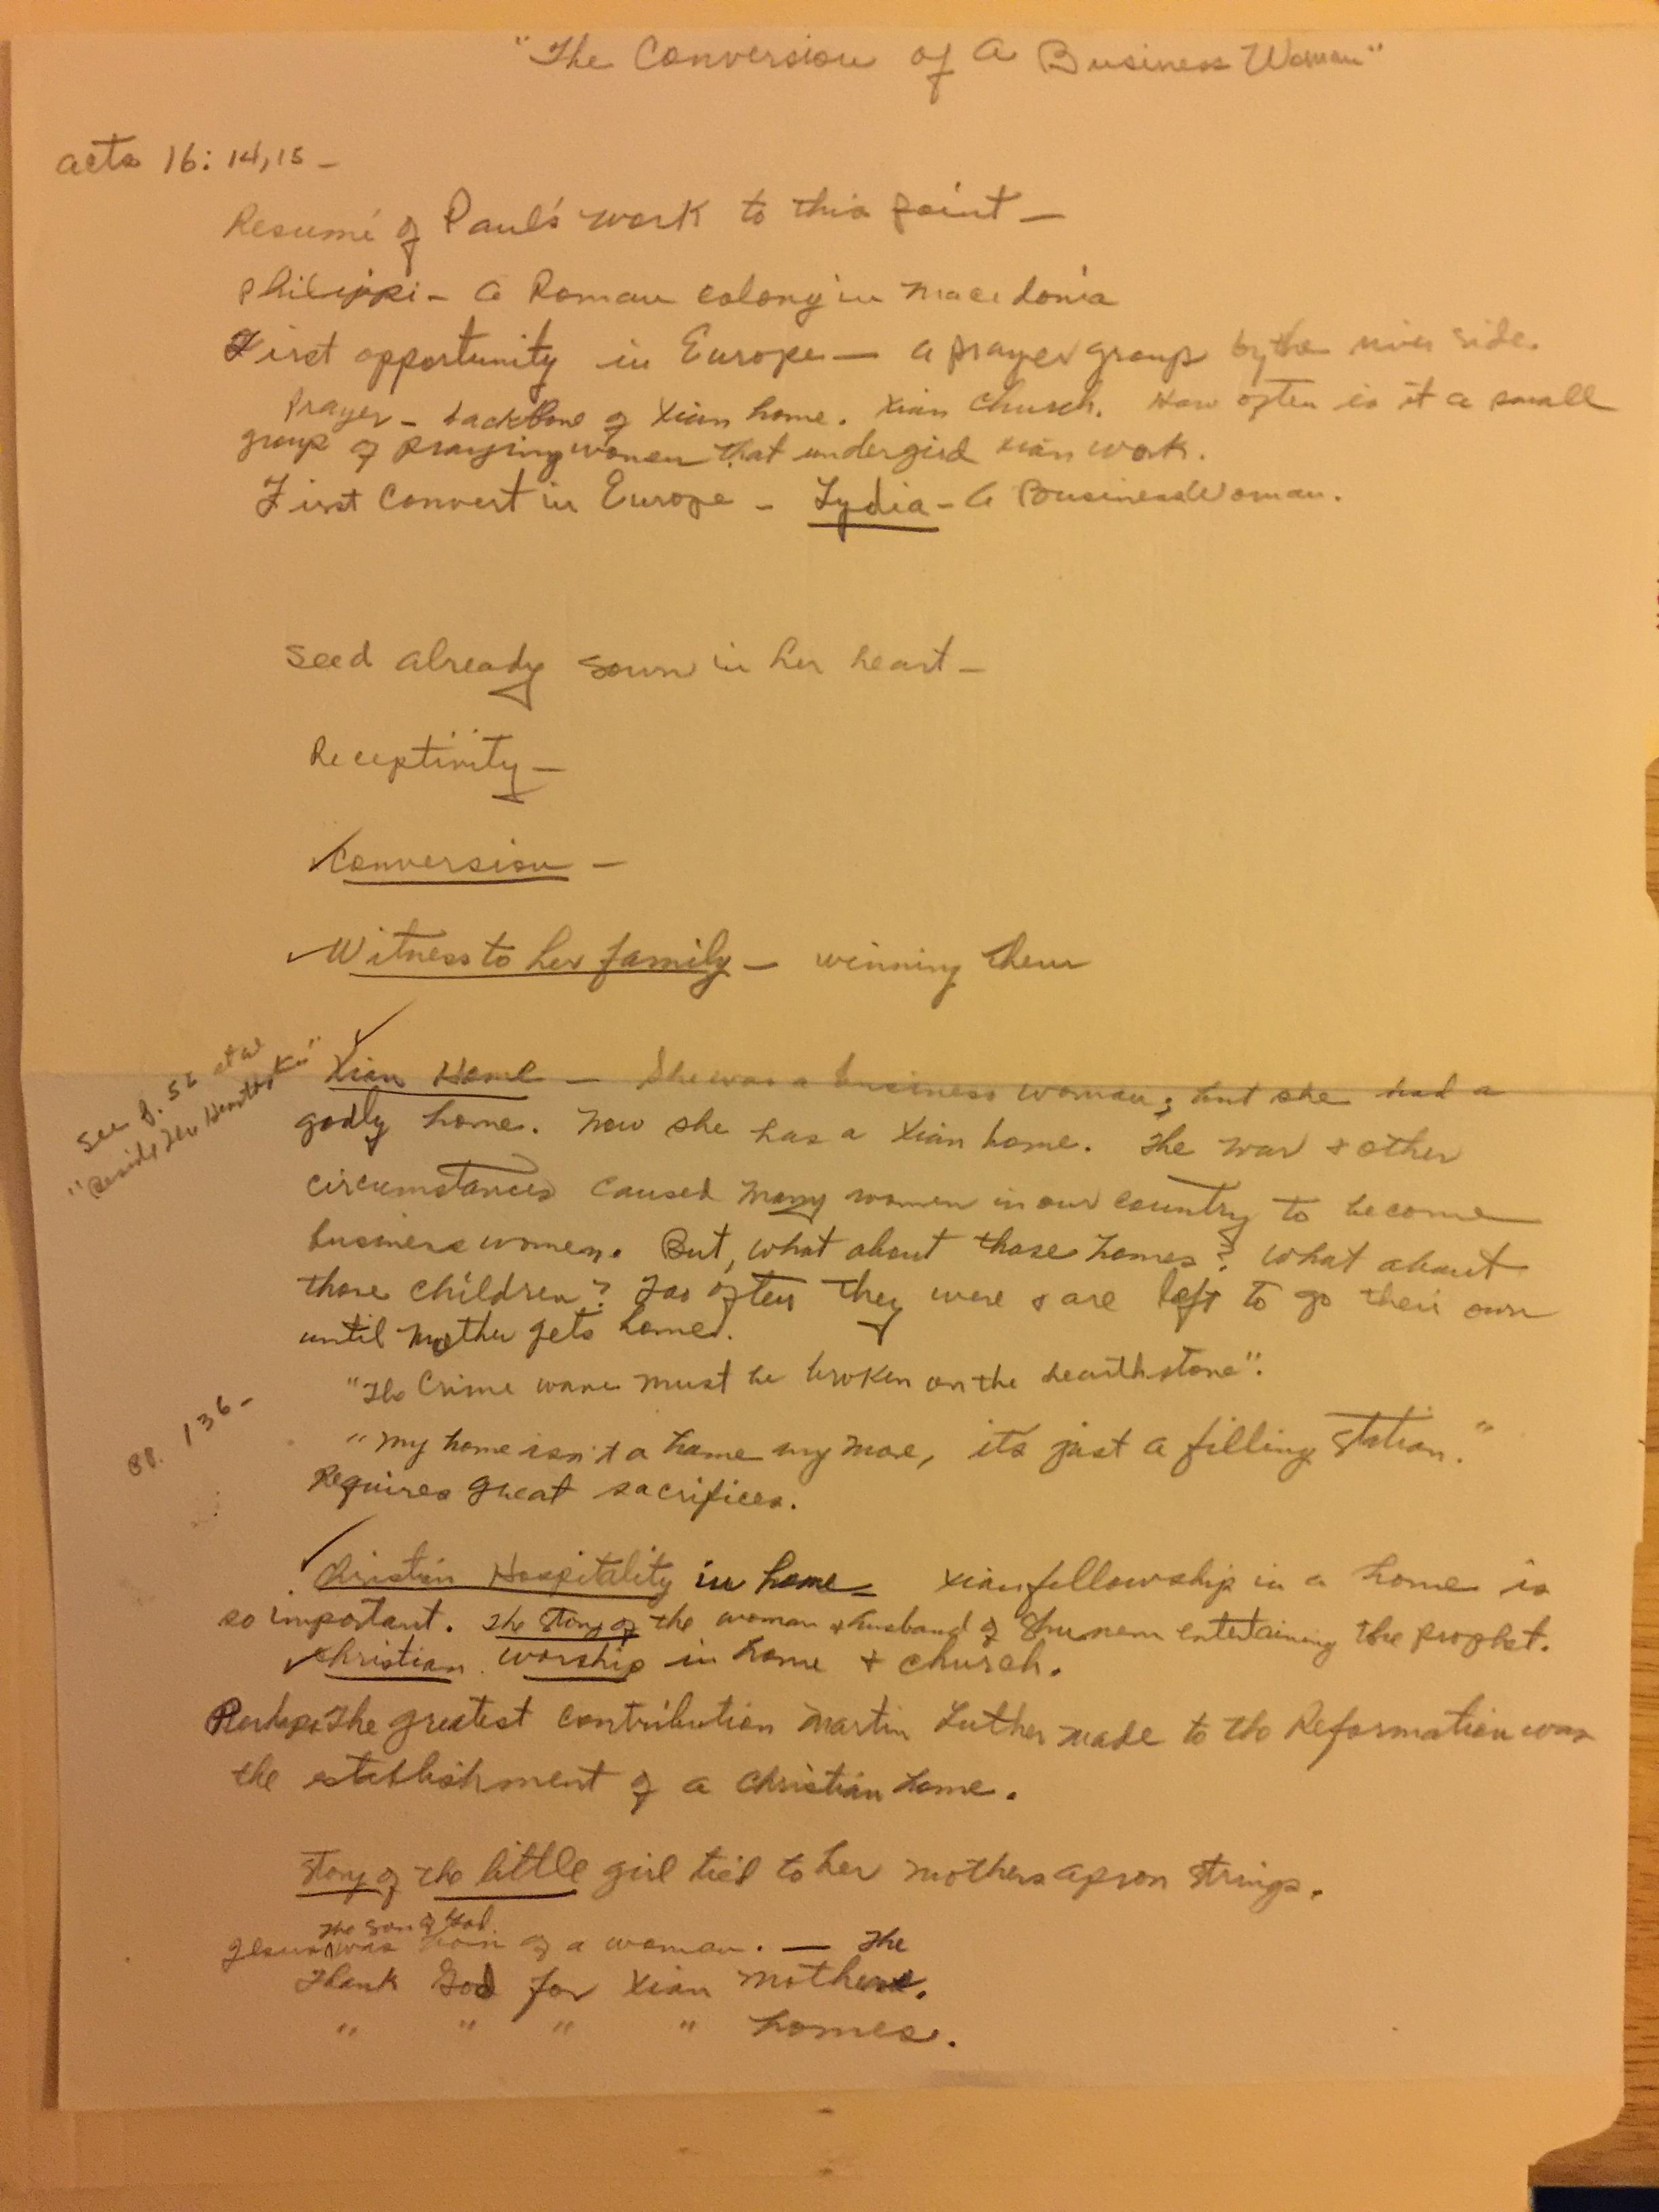 "The Conversion of A Business Woman"
Acts 16: 14, 15 –
Resumé of Paul's work to this point –
Philippi – A Roman colony in Macedonia
First opportunity in Europe – a prayer group by the river side.
Prayer – backbone of Xian home. Xian Church. How often is it a small
group of praying women that undergird Xian work.
First Convert in Europe – Lydia – A Business Woman.
Seed already sown in her heart –
Receptivity –
Conversion –
Witness to her family – winning them
See p. 52 et al
"Beside The Hearthstone"
Xian Home – She was a business woman; but she had a
godly home. Now she has a Xian home. The war + other
circumstances caused many women in our country to become
business women. But, what about those homes? What about
those children? Too often they were & are left to go their own
until Mother gets home.
"The Crime wave must be broken on the hearthstone".
136 –
"My home isn't a home any more, its just a filling station."
Requires great sacrifices.
Christian Hospitality in home – Xian fellowship in a home is
so important. The Story of the woman & husband of Shunem entertaining the prophet.
Christian worship in home + church.
Perhaps The greatest contribution Martin Luther made to the Reformation was
the establishment of a Christian home.
Story of the little girl tied to her mothers apron strings.
The Son of God
Jesus was born of a woman. – The
Thank God for Xian Mothers.
" " " " homes.